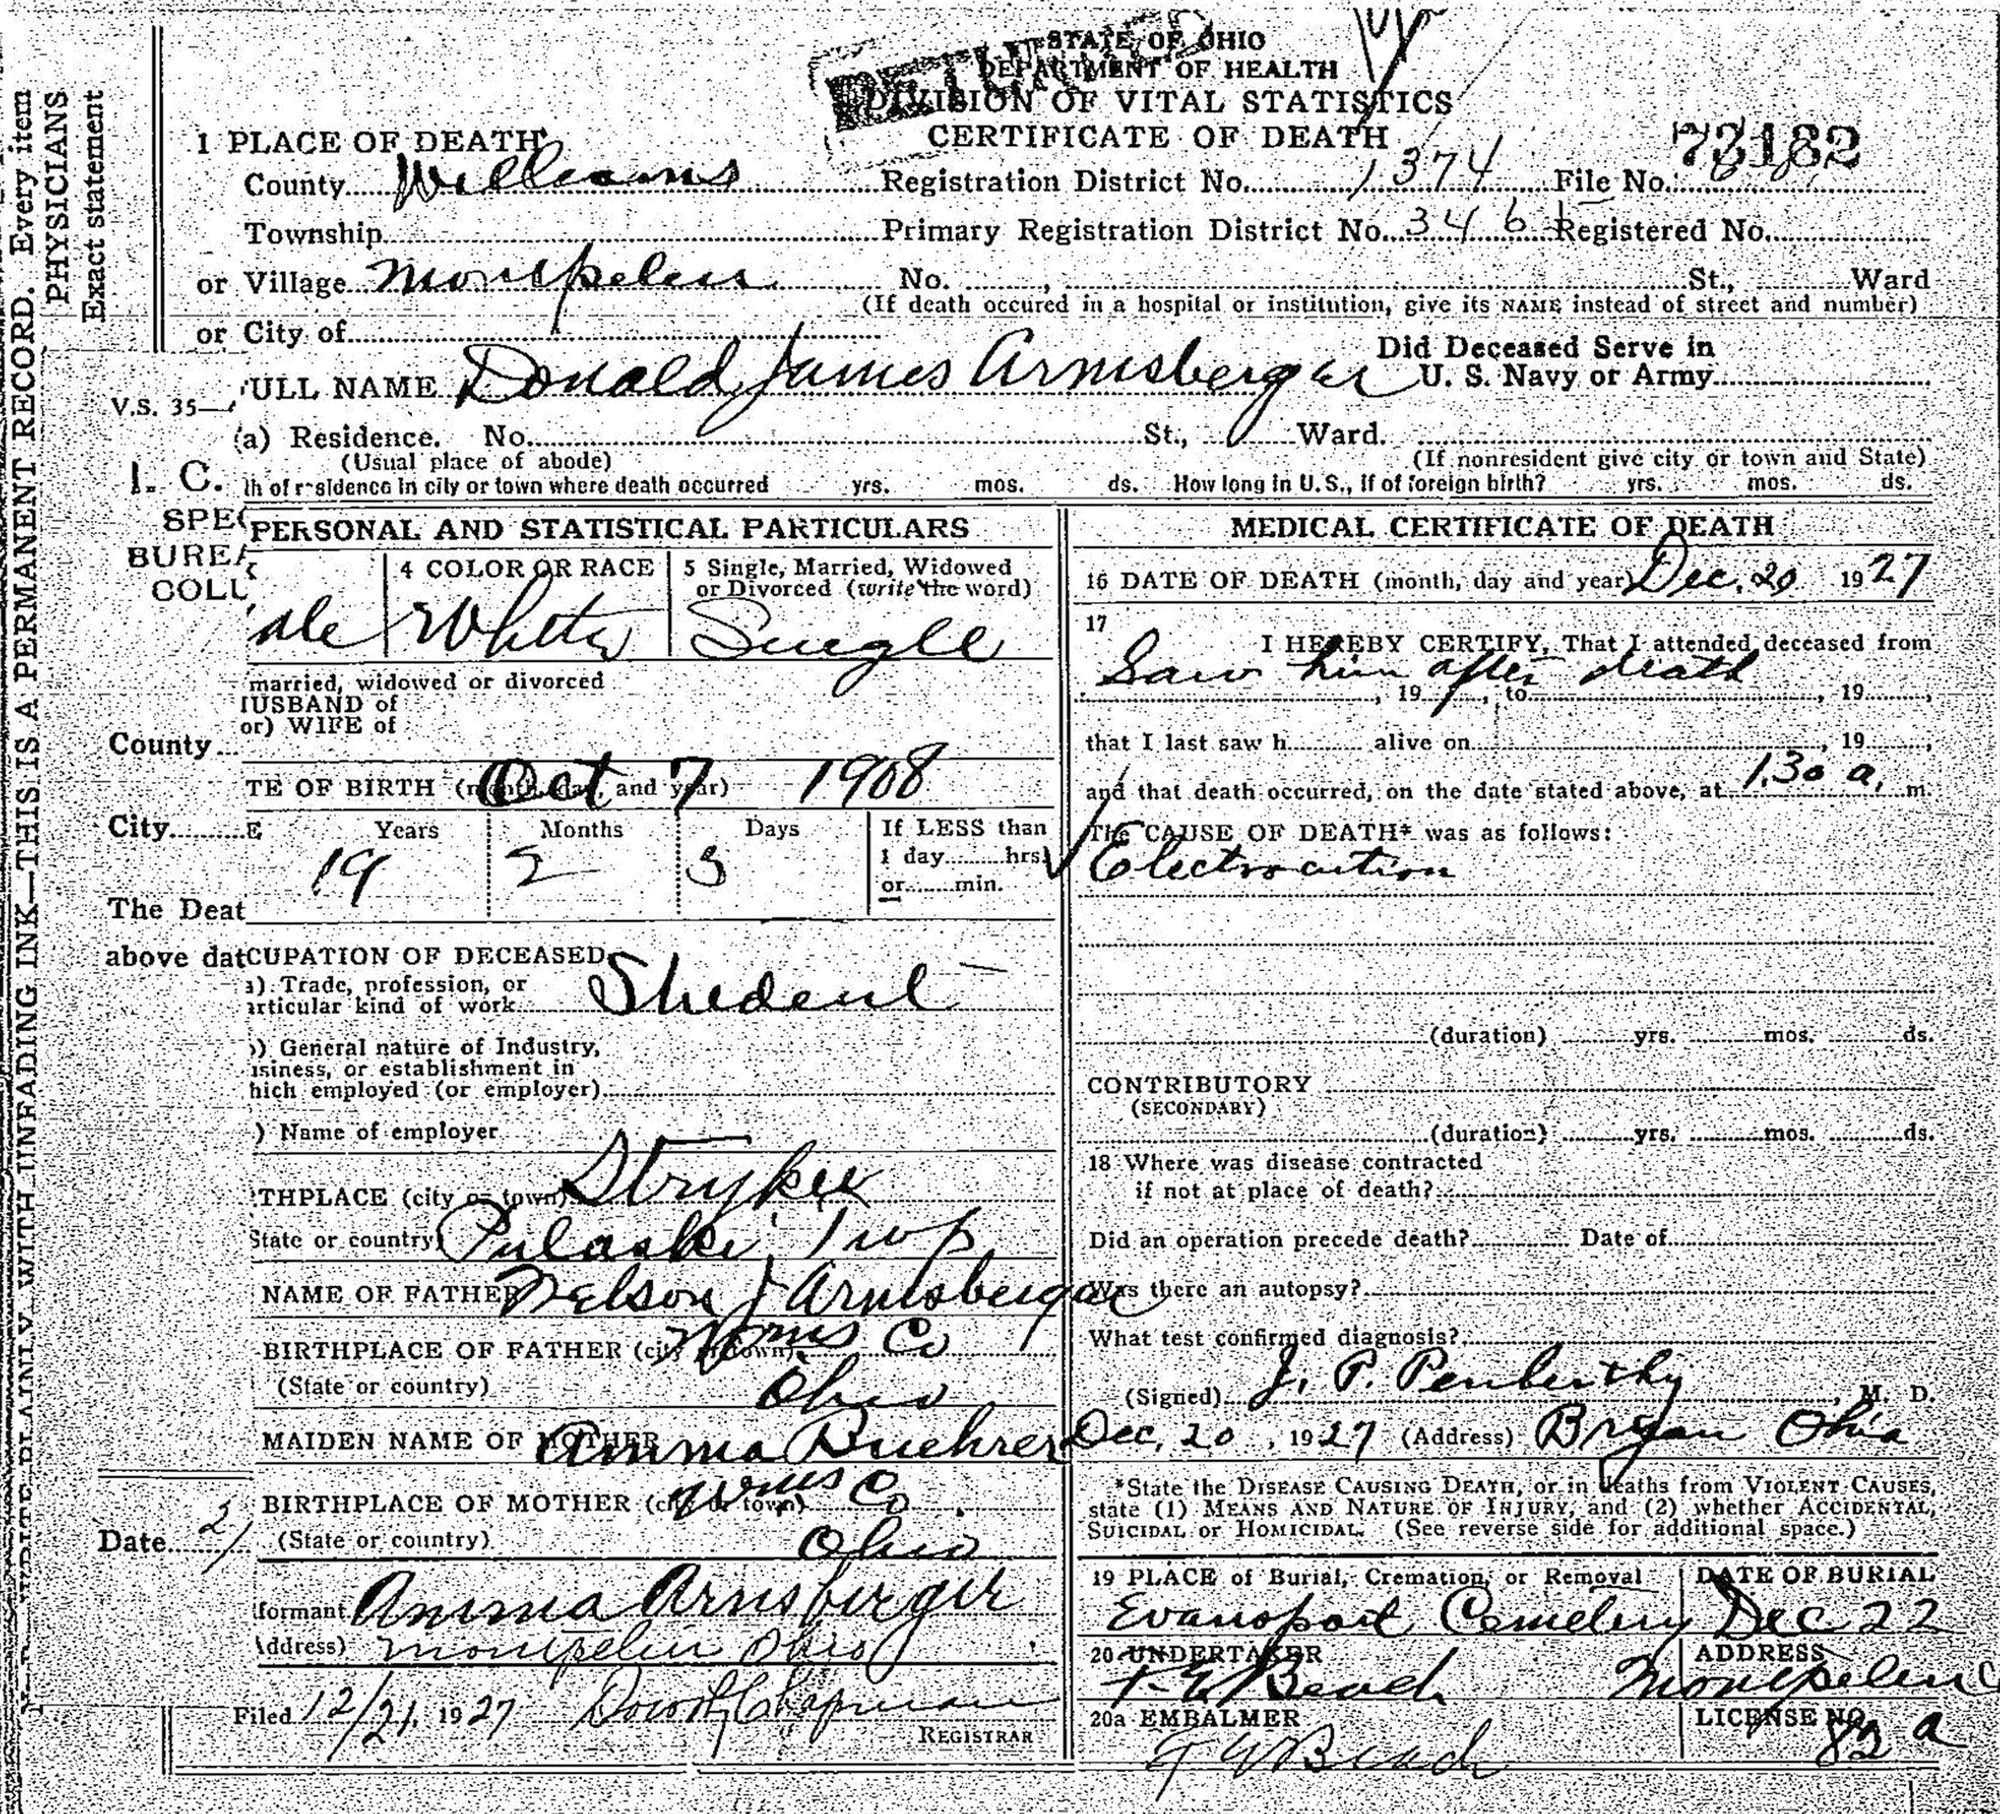 STATE OF OHIO
DEPARTMENT OF HEALTH
DIVISION OF VITAL STATISTICS
CERTIFICATE OF DEATH
73182
1 PLACE OF DEATH
County Williams Registration District No. 1374 File No.
Township Primary Registration District No. 3461 Registered No.
or Village Montpelier No. St., Ward
(If death occured in a hospital or institution, give its NAME instead of street and number)
or City of
Did Deceased Serve in
U. S. Navy or Army
ULL NAME Donald James Arnsberger
V.S. 35—
(a) Residence. No. St., Ward.
(Usual place of abode) (If nonresident give city or town and State)
I. C.
th of residence in city or town where death occurred yrs. mos. ds. How long in U.S., if of foreign birth? yrs. mos. ds.
SPEC
BUREA
COLL
PERSONAL AND STATISTICAL PARTICULARS
4 COLOR OR RACE 5 Single, Married, Widowed
or Divorced (write the word)
ale White Single
married, widowed or divorced
HUSBAND of
or) WIFE of
County
TE OF BIRTH (month, day, and year) Oct 7 1908
City
E Years Months Days If LESS than
1 day hrs.
or min.
19 2 3
The Deat
above dat
CUPATION OF DECEASED
a) Trade, profession, or
articular kind of work Student
b) General nature of Industry,
usiness, or establishment in
hich employed (or employer)
) Name of employer
THPLACE (city or town) Stryker
State or country) Pulaski Twp
NAME OF FATHER Nelson J Arnsberger
BIRTHPLACE OF FATHER (city or town) Wms Co
(State or country) Ohio
MAIDEN NAME OF MOTHER Amma Buehrer
BIRTHPLACE OF MOTHER (city or town) Wms Co
(State or country) Ohio
Date 2/
formant Amma Arnsberger
Address) Montpelier Ohio
Filed 12/21, 1927 Chapman
REGISTRAR
MEDICAL CERTIFICATE OF DEATH
16 DATE OF DEATH (month, day and year) Dec. 20 1927
17
I HEREBY CERTIFY, That I attended deceased from
Saw him after death
, 19 , to , 19 ,
that I last saw h alive on , 19 ,
and that death occurred, on the date stated above, at 1.30 a. m.
The CAUSE OF DEATH* was as follows:
Electrocution
(duration) yrs. mos. ds.
CONTRIBUTORY
(SECONDARY)
(duration) yrs. mos. ds.
18 Where was disease contracted
if not at place of death?
Did an operation precede death? Date of
Was there an autopsy?
What test confirmed diagnosis?
(Signed) J. P. Penberthy, M. D.
Dec. 20, 1927 (Address) Bryan Ohio
*State the DISEASE CAUSING DEATH, or in deaths from VIOLENT CAUSES,
state (1) MEANS AND NATURE OF INJURY, and (2) whether ACCIDENTAL,
SUICIDAL or HOMICIDAL. (See reverse side for additional space.)
19 PLACE of Burial, Cremation, or Removal DATE OF BURIAL
Evansport Cemetery Dec 22
20 UNDERTAKER ADDRESS
Beach Montpelier O
20a EMBALMER LICENSE NO.
Beach 82 a
PHYSICIANS
Exact statement
WITH UNFADING INK—THIS IS A PERMANENT RECORD. Every item